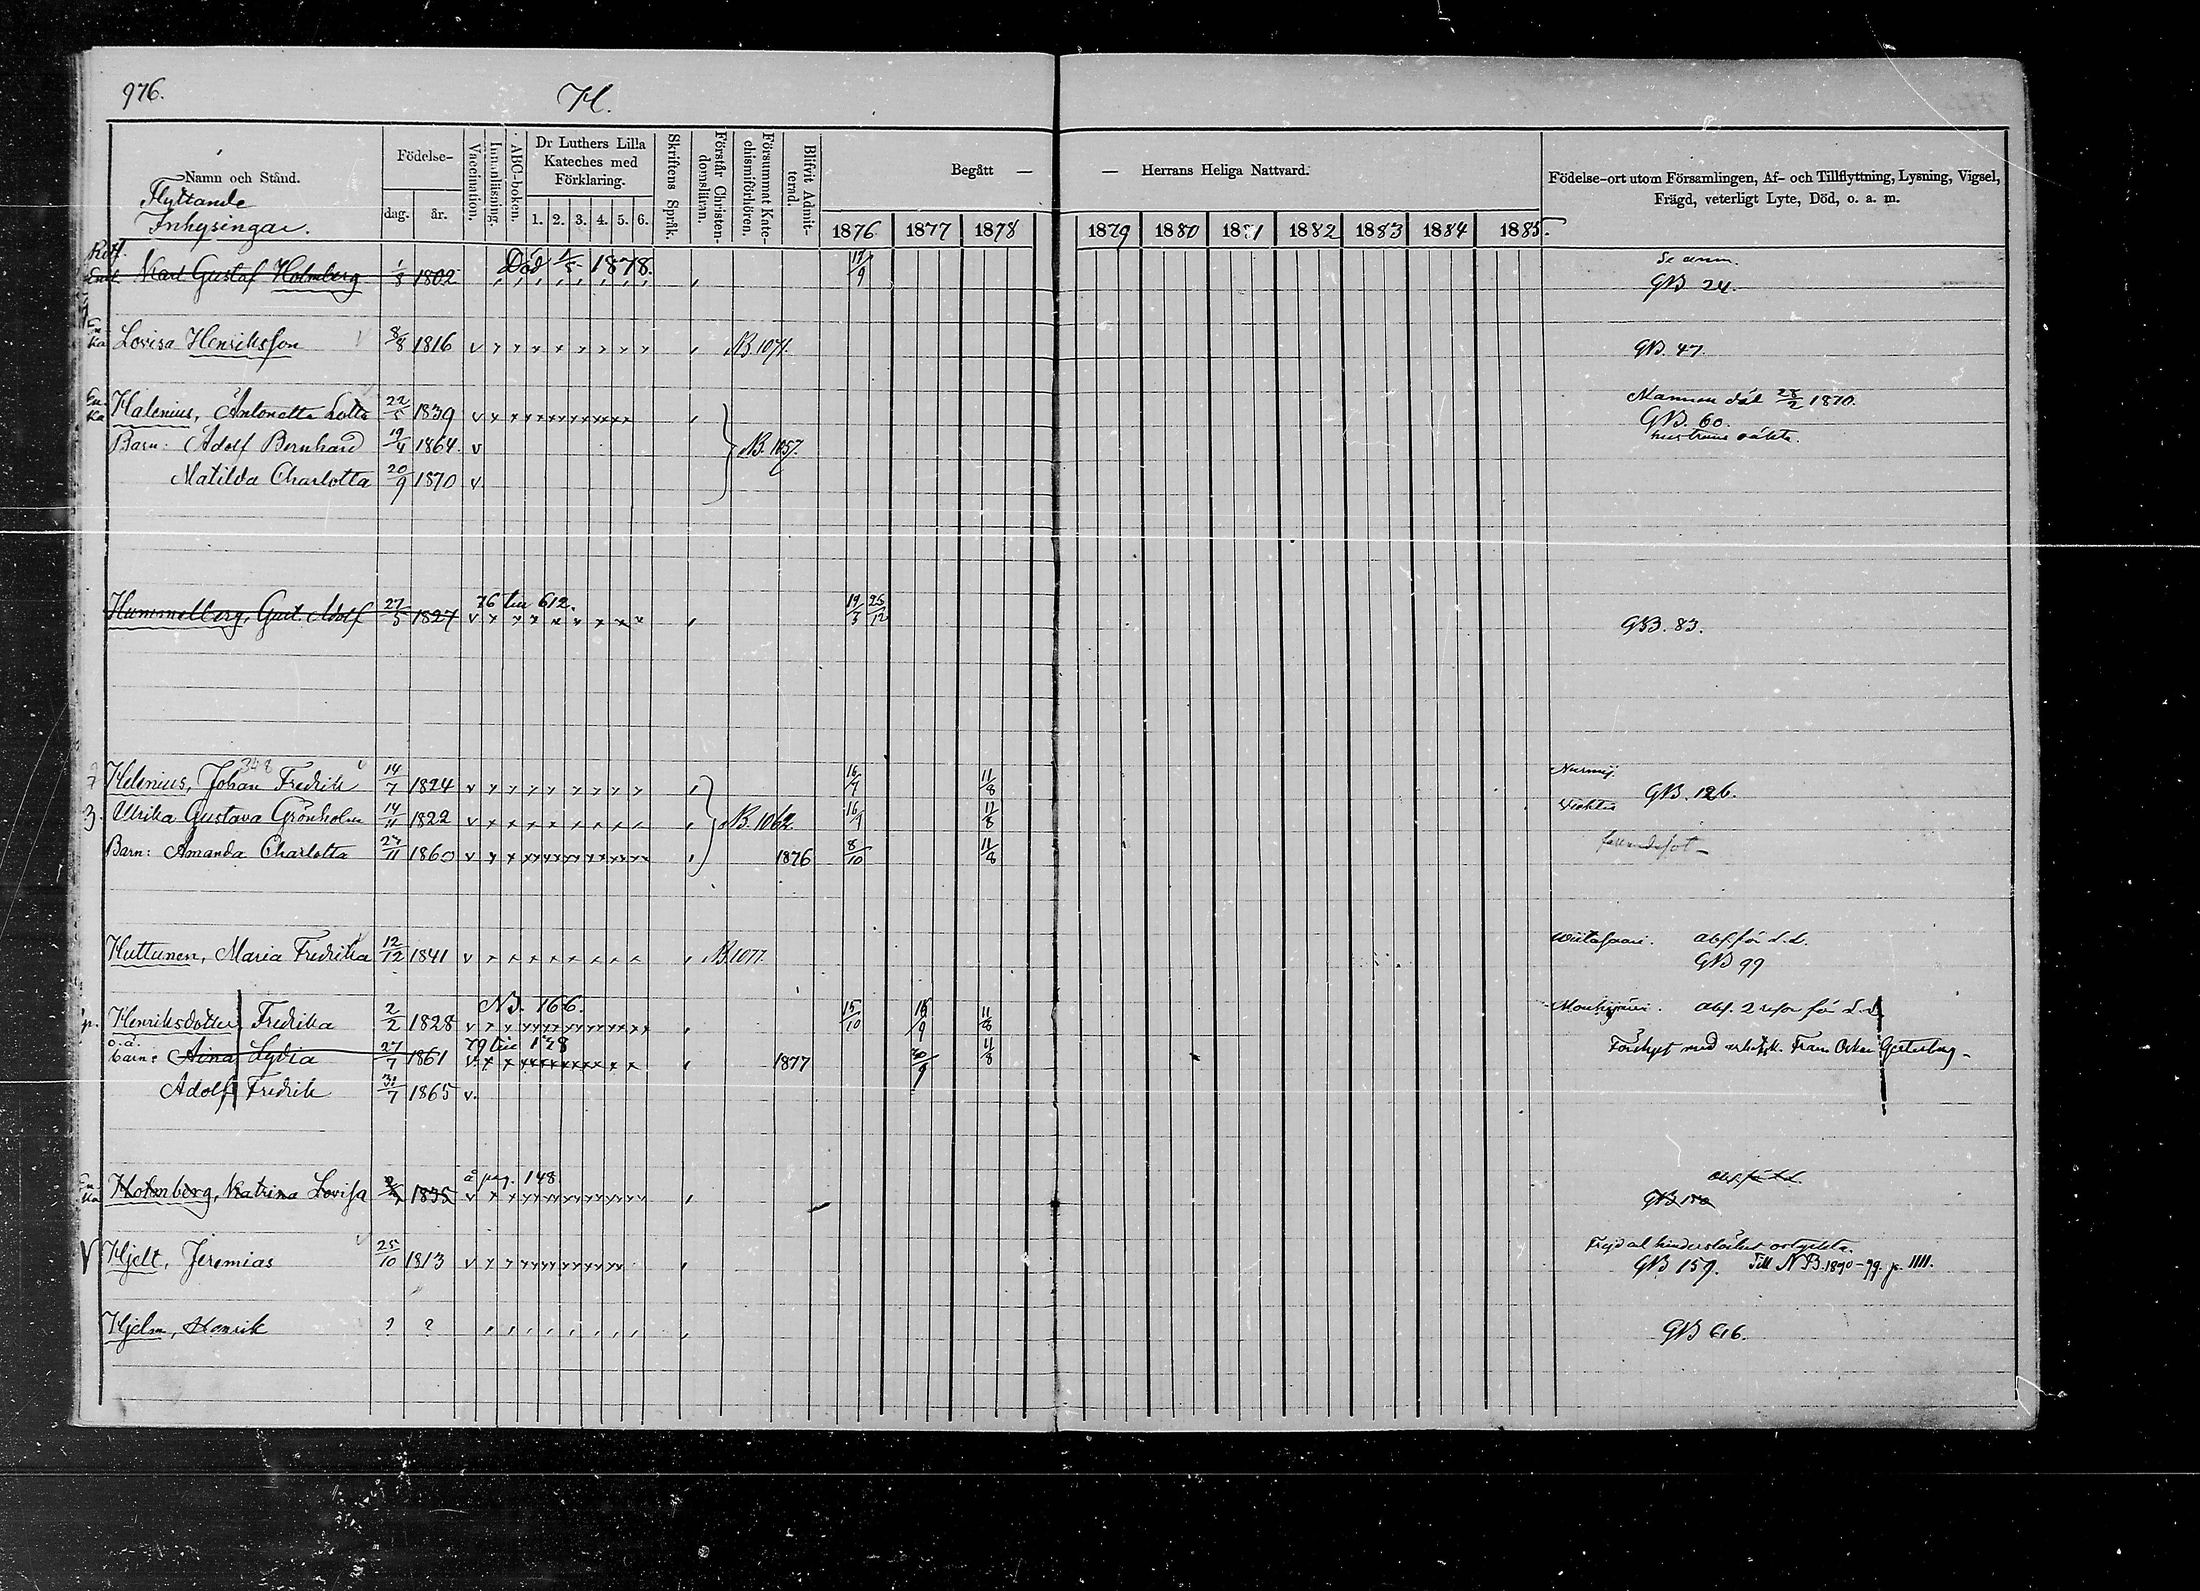 976.
H.
Namn och Stånd.
Flyttande
Inhysingar.
Födelse-
dag.
år.
Vaccination.
Innanläsning.
ABC-boken.
Dr Luthers Lilla
Kateches med
Förklaring.
1. 2. 3. 4. 5. 6.
Skriftens Språk.
Förstår Christen-
domsläran.
Försummat Kate-
chismiförhören.
Blifvit Admit-
terad.
Begått — — Herrans Heliga Nattvard.
1876 1877 1878 1879 1880 1881 1882 1883 1884 1885.
Födelse-ort utom Församlingen, Af- och Tillflyttning, Lysning, Vigsel,
Frägd, veterligt Lyte, Död, o. a. m.
Karl Gustaf Holmberg 1/8 1802 Död 1/5 1878. 17/9 Se anm.
GB 24.
En
ka Lovisa Henriksson 8/8 1816 v NB 1071. GB. 47.
En
ka Halenius, Antonetta Lotta 22/5 1839 v Mannen död 28/2 1870.
GB. 60.
Barn: Adolf Bernhard 19/4 1864. v NB. 1057.
Matilda Charlotta 20/9 1870 v
Hummelberg, Gust. Adolf 27/5 1827 v 76 lin 612. 19/3 25/12 GB. 83.
348
Helenius, Johan Fredrik 14/7 1824 v 16/9 11/8 Nurmij.
GB. 126.
Ulrika Gustava Grönholm 14/11 1822 v NB. 1062 16/9 11/8
Barn: Amanda Charlotta 27/11 1860 v 1876 8/10 11/8
Huttunen, Maria Fredrika 12/12 1841 v NB. 1077. Wiitasaari.
GB 99
Henriksdotter Fredrika 2/2 1828 v NB. 166. 15/10 16/9 11/8
o.ä.
barn: Aina Lydia 27/7 1861 1877 30/9 11/8
Adolf Fredrik 31/7 1865 v.
En
ka Holmberg, Katrina Lovisa 1835 v å pag. 148
GB 150
Hjelt, Jeremias 25/10 1813 v
GB 157. Till NB. 1890-99. p. 1111.
Hjelm, Henrik ? ? GB 616.